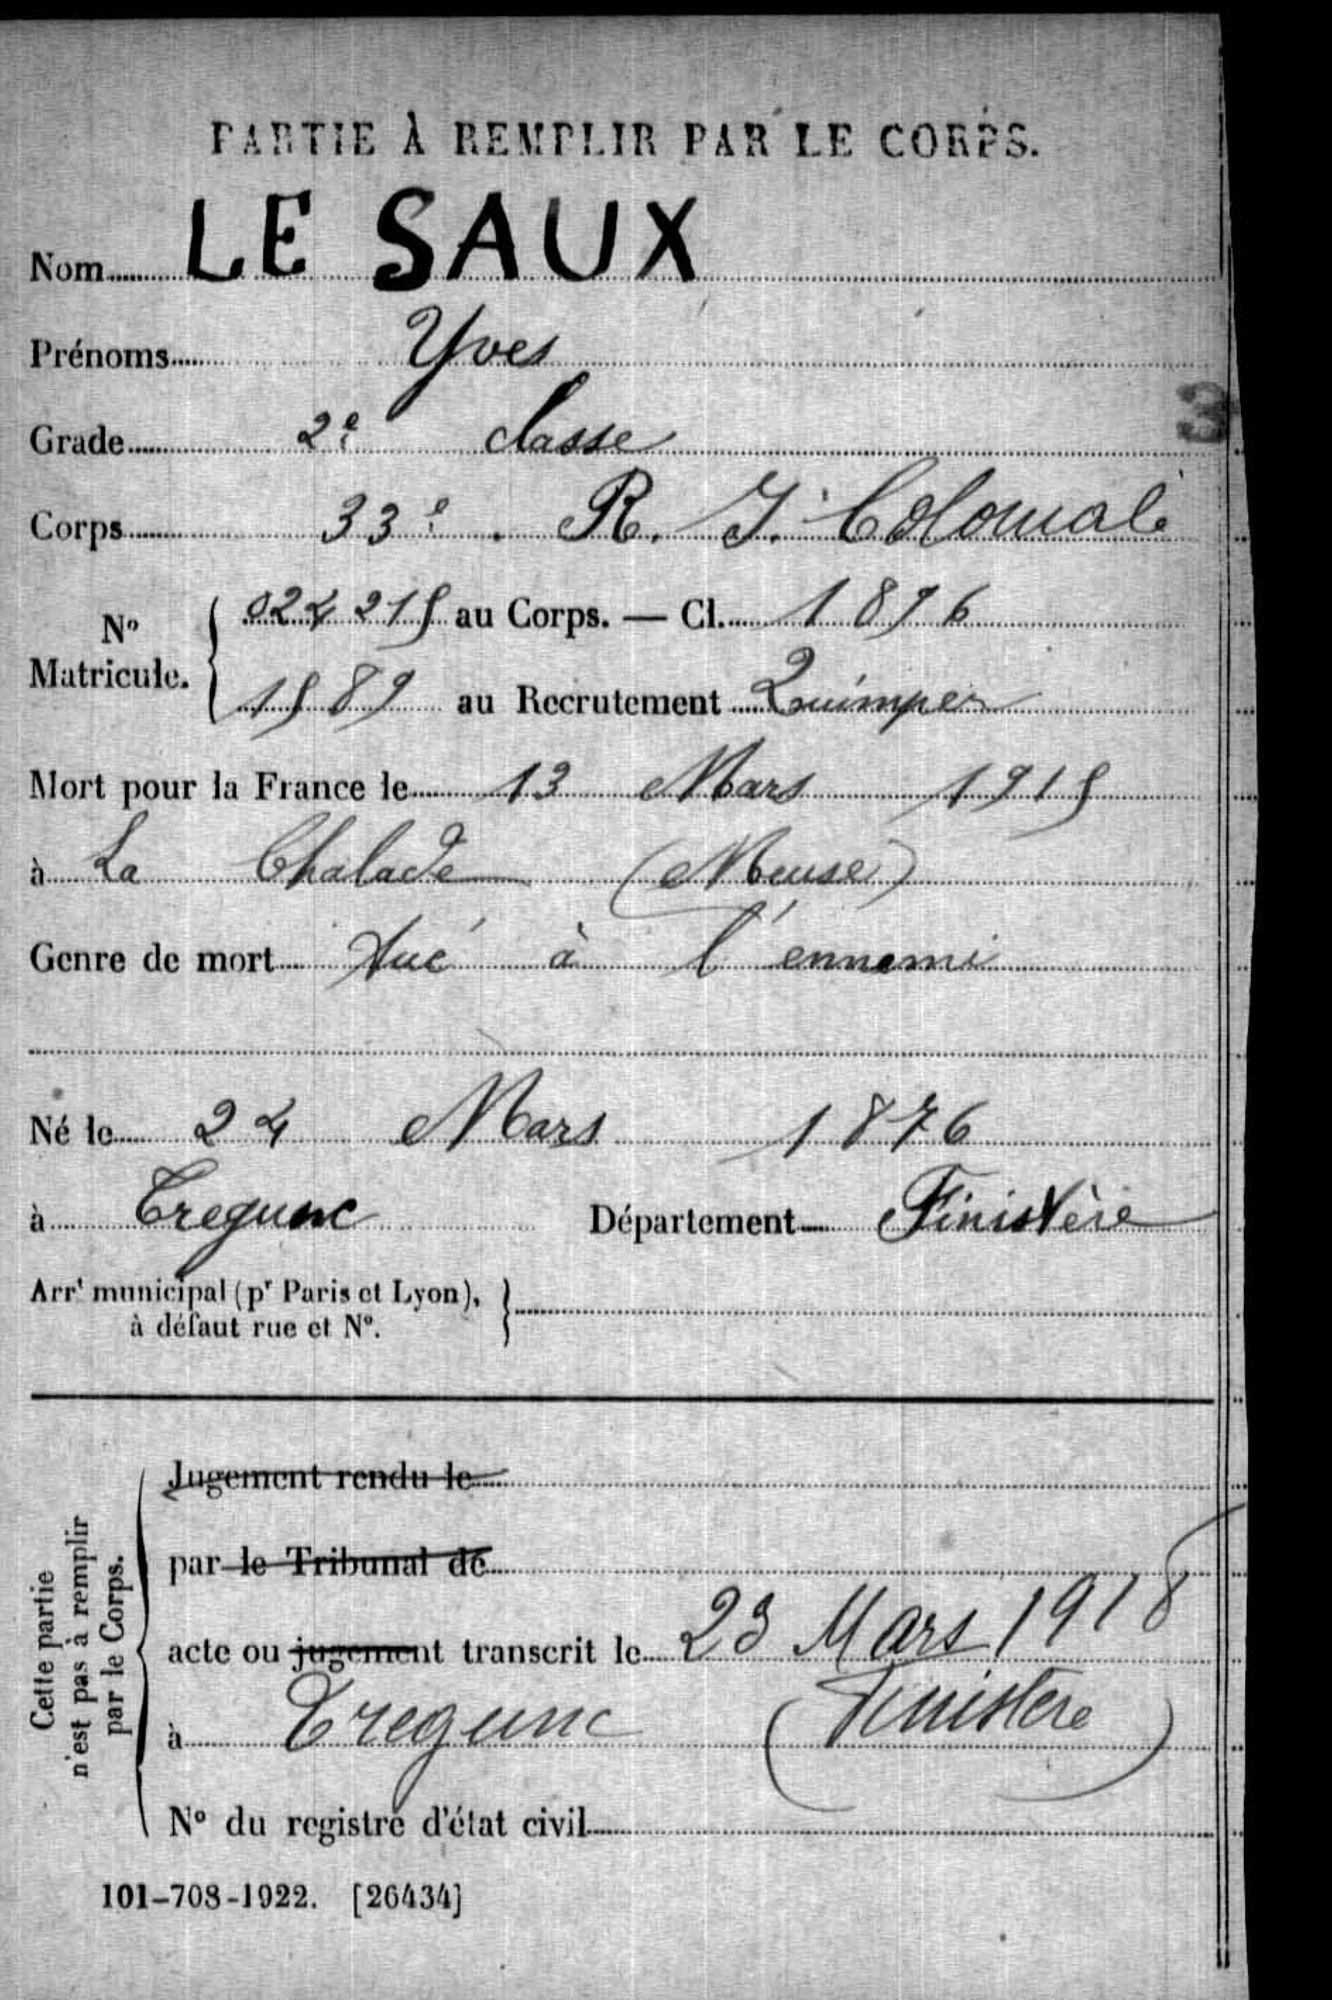 PARTIE À REMPLIR PAR LE CORPS.
Nom LE SAUX
Prénoms Yves
Grade 2e classe
3
Corps 33e. R. I. Colonial
No Matricule. { 024215 au Corps. — Cl. 1896
1589 au Recrutement Quimper
Mort pour la France le 13 Mars 1915
à La Chalade (Meuse)
Genre de mort Tué à l'ennemi
Né le 24 Mars 1876
à Tregunc Département Finistère
Arrt municipal (pr Paris et Lyon), à défaut rue et No. }
Cette partie n'est pas à remplir par le Corps.
Jugement rendu le
par le Tribunal de
acte ou jugement transcrit le 23 Mars 1918
à Tregunc (Finistère)
No du registre d'état civil
101-708-1922. [26434]